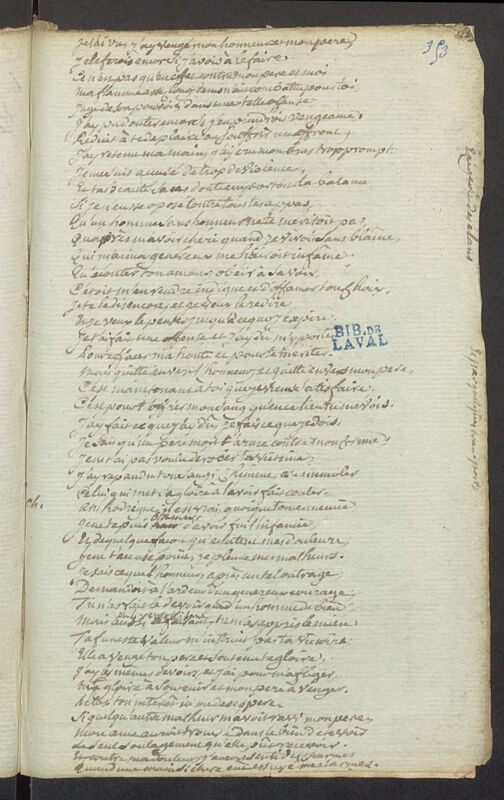 353
Je l'ai vu, j'ay vengé mon honneur et mon pere,
Je le ferois encor si j'avois à le faire.
Ce n'en pas qu'en effet contre mon pere et moi
ma flamme assez long tems n'ait combattu pour toi
Juge de son pouvoir, dans une telle offense
J'ay pu douter encor si j'en prendrois vengeance,
Reduit à te deplaire ou souffrir un affront,
J'ay retenu ma main, j'ay cru mon bras trop prompt
Je me suis accusé de trop de violence,
Et ta beauté sans doute emportoit la balance
Si je n'eusse opposé contre tous tes appas,
Qu'un homme sans honneur ne te meritoit pas,
Qu'après m'avoir cheri quand je vivois sans blâme,
Qui m'aima genereux me haïroit infame.
Qu'ecouter ton amour, obéir à sa voix
C'etoit m'en rendre indigne et diffamer ton choix,
Je te le dis encore, et je veux le redire
Et je veux le penser jusqu'à ce que j'expire:
Je t'ai fait une offense et j'ay du m'y porter
Pour effacer ma honte et pour te meriter.
Mais quitte envers l'honneur, et quitte envers mon pere,
C'est maintenant à toi que je viens satisfaire.
C'est pour t'offrir mon sang qu'en ce lieu tu me vois.
J'ay fait ce que j'ay du, je fais ce que je dois.
Je sais qu'un pere mort t'arme contre mon crime,
Je ne t'ai pas voulu derober ta victime;
BIB. DE
LAVAL
ch.
Ah! Rodrigue, il est vrai, quoique ton ennemie
Je ne te puis blamer d'avoir fui l'infamie,
Et de quelque façon qu'eclatent mes douleurs,
Je ne t'accuse point, je pleure mes malheurs.
Je sais ce que l'honneur, après un tel outrage,
Demandoit à l'ardeur d'un genereux courage,
Tu n'as fait le devoir que d'un homme de bien
Mais aussi le faisant, tu m'as appris le mien.
Ta funeste valeur m'instruit par ta victoire
Elle a vengé ton pere et soutenu ta gloire,
J'ay la même devoir, et j'ai pour m'affliger,
Ma gloire à soutenir et mon pere à venger.
Helas ton interêt ici me desespere.
Si quelqu'autre malheur m'avoit ravi mon pere,
Mon ame auroit trouvé dans le bien de te voir
Le seul soulagement qu'elle put recevoir.
Et contre ma douleur j'aurois senti des charmes
Quand une main si chere eut essuyé mes larmes.